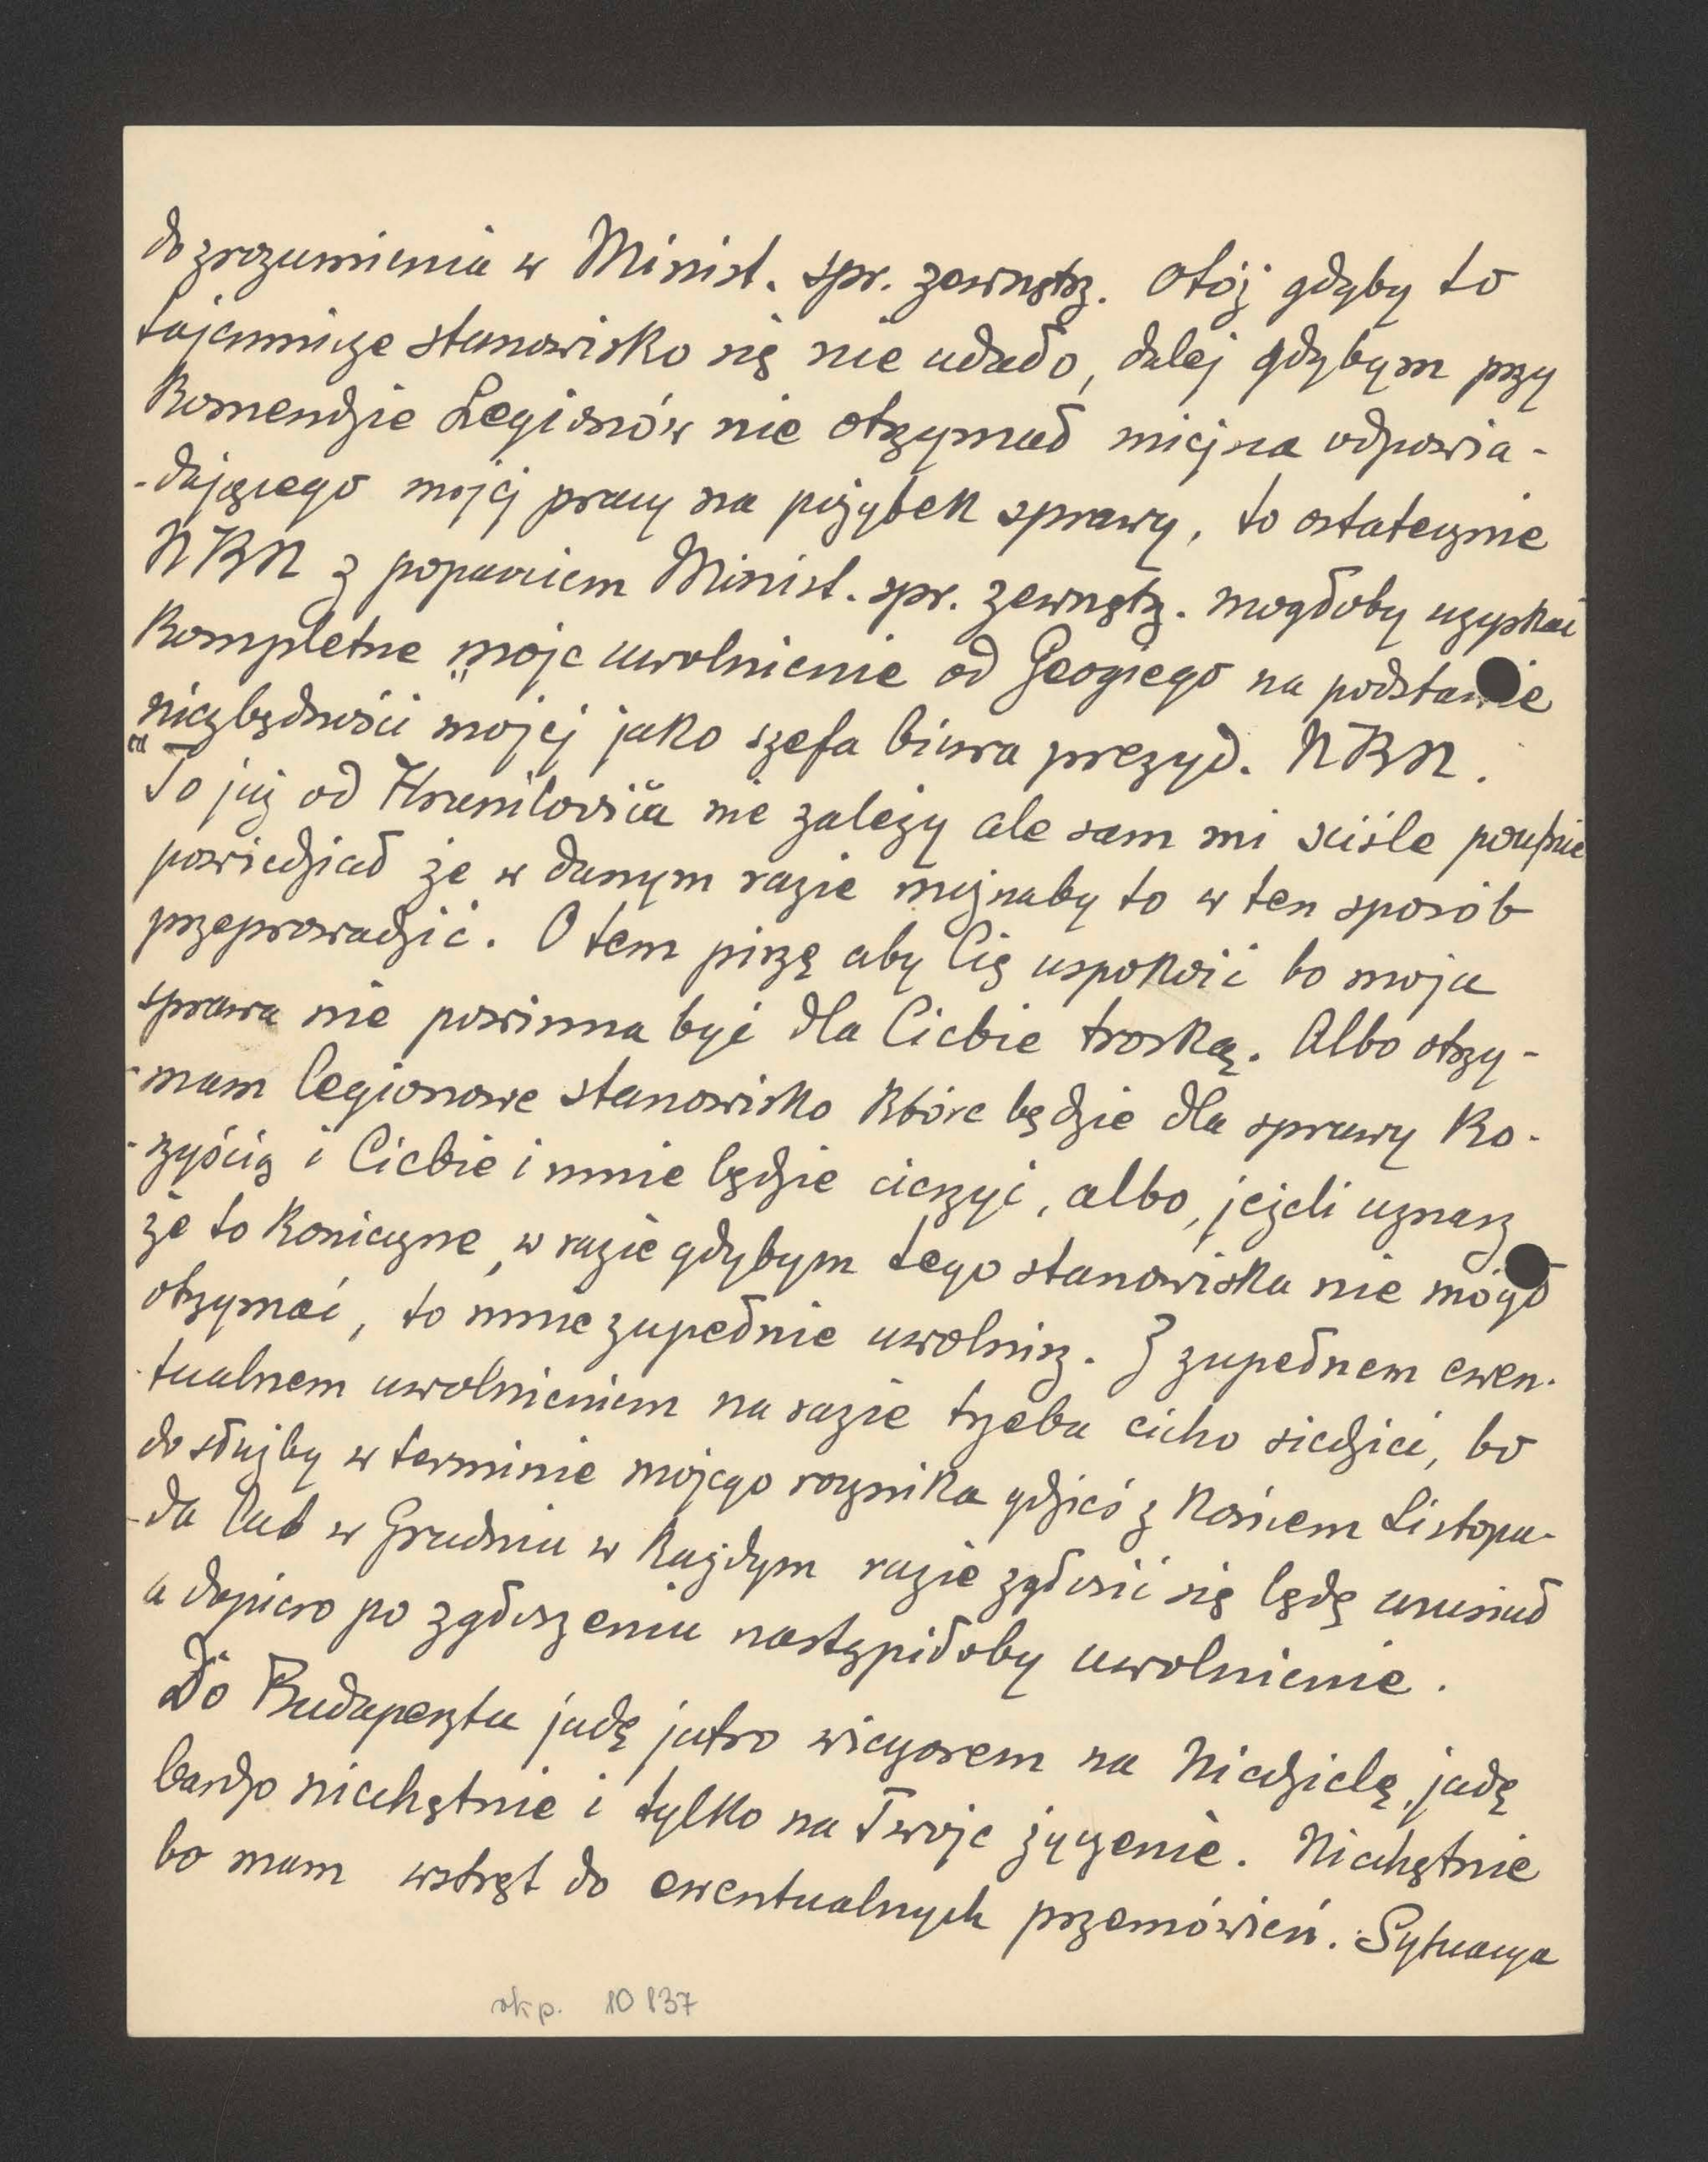 do zrozumienia w Minist. spr. zewnętrz. Otóż gdyby to
tajemnicze stanowisko się nie udało, dalej gdybym przy
Komendzie Legionów nie otrzymał miejsca odpowia-
-dającego mojej pracy na pożytek sprawy, to ostatecznie
NKN z poparciem Minist. spr. zewnętrz. mogłoby uzyskać
kompletne moje uwolnienie od Geogiego na podstawie
„niezbędności" mojej jako szefa biura prezyd. NKN.
To już od Hranilovića nie zależy ale sam mi ściśle poufnie
powiedział że w danym razie możnaby to w ten sposób
przeprowadzić. O tem piszę aby Cię uspokoić bo moja
sprawa nie powinna być dla Ciebie troską. Albo otrzy-
-mam legionowe stanowisko które będzie dla sprawy ko-
-rzyścią i Ciebie i mnie będzie cieszyć, albo, jeżeli uznasz
że to konieczne, w razie gdybym tego stanowiska nie mógł
otrzymać, to mnie zupełnie uwolnisz. Z zupełnem ewen-
-tualnem uwolnieniem na razie trzeba cicho siedzieć, bo
do służby w terminie mojego rocznika gdzieś z końcem Listopa-
-da lub w Grudniu w każdym razie zgłosić się będę musiał
a dopiero po zgłoszeniu nastąpiłoby uwolnienie.
Do Budapesztu jadę jutro wieczorem na Niedzielę, jadę
bardzo niechętnie i tylko na Twoje życzenie. Niechętnie
bo mam wstręt do ewentualnych przemówień. Sytuacya
rkp. 10137